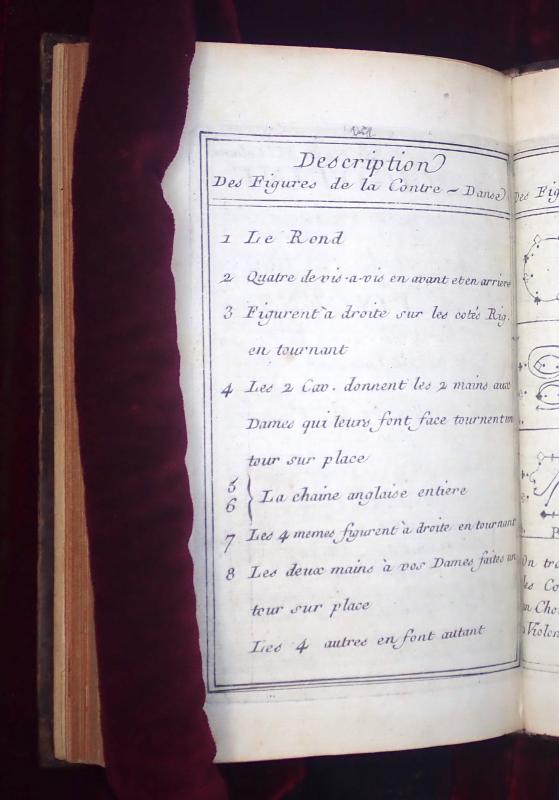 Description
Des Figures de la Contre - Danse
1 Le Rond
2 Quatre de vis-a-vis en avant et en arriere
3 Figurent à droite sur les cotés Rig.
en tournant
4 Les 2 Cav. donnent les 2 mains aux
Dames qui leurs font face tournent un
tour sur place
5
6 } La chaine anglaise entiere
7 Les 4 memes figurent à droite en tournant
8 Les deux mains à vos Dames faites un
tour sur place
Les 4 autres en font autant
Des Fig
On tro
les Co
Violon